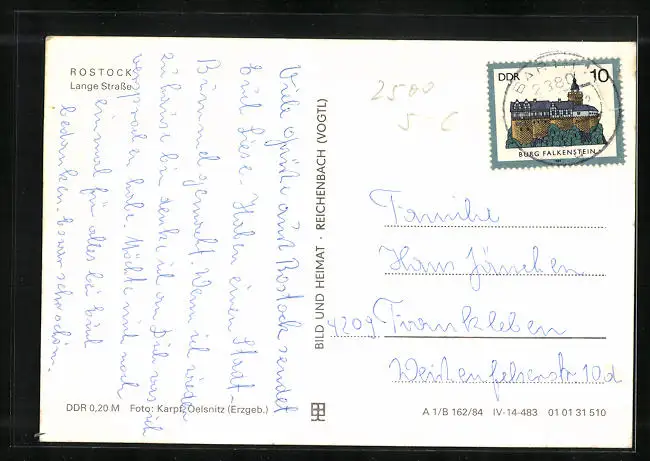 ROSTOCK
Lange Straße
Viele Grüße aus Rostock sendet
Euch Liese. Haben einen Stadt-
Bummel gemacht. Wenn ich wieder
zu hause bin denke ich an Dich was ich
versprochen habe. Möchte mich noch
einmal für alles bei Euch
bedanken.
DDR 0,20 M Foto: Karpf, Oelsnitz (Erzgeb.)
BILD UND HEIMAT · REICHENBACH (VOGTL)
2500
5-6
DDR 10
2380
BURG FALKENSTEIN
Familie
Hans Jänchen
4209 Frankleben
Weißenfelserstr 10d
A 1/B 162/84 IV-14-483 01 01 31 510